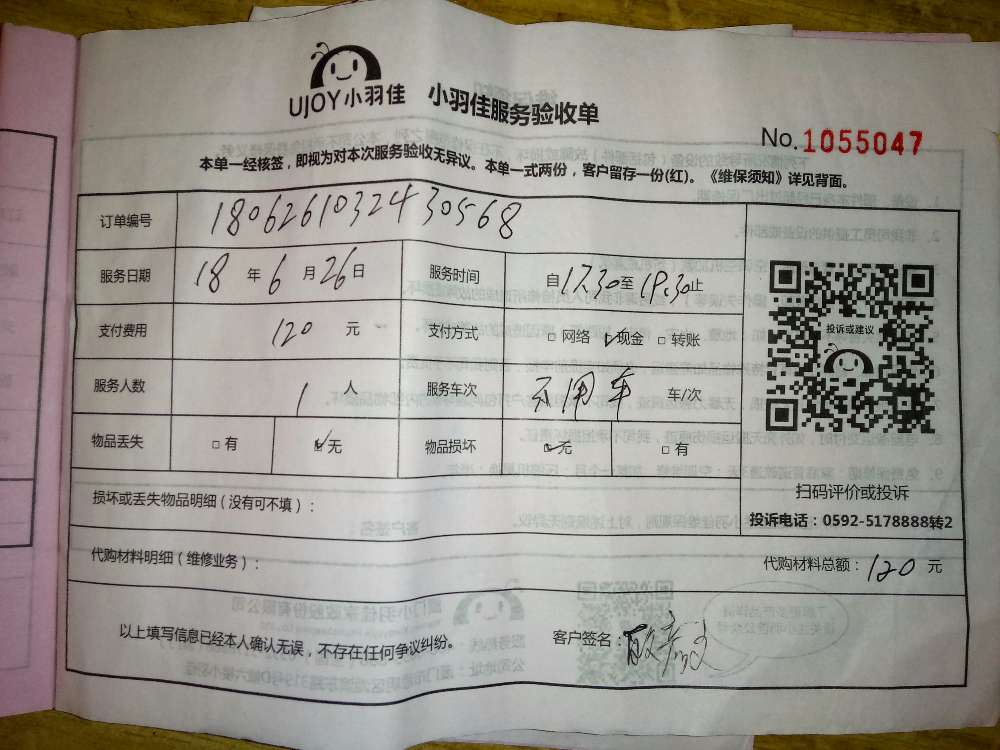 UJOY小羽佳
小羽佳服务验收单
No.1055047
本单一经核签，即视为对本次服务验收无异议。本单一式两份，客户留存一份(红)。《维保须知》详见背面。
订单编号 18062610324 30568
服务日期 18 年 6 月 26 日 服务时间 自 17.30 至 19.30 止
支付费用 120 元 支付方式 □ 网络 ☑ 现金 □ 转账
服务人数 1 人 服务车次 不用车 车/次
物品丢失 □ 有 ☑ 无 物品损坏 ☑ 无 □ 有
投诉或建议
扫码评价或投诉
投诉电话：0592-5178888转2
损坏或丢失物品明细（没有可不填）：
代购材料明细（维修业务）： 代购材料总额：120 元
以上填写信息已经本人确认无误，不存在任何争议纠纷。 客户签名：